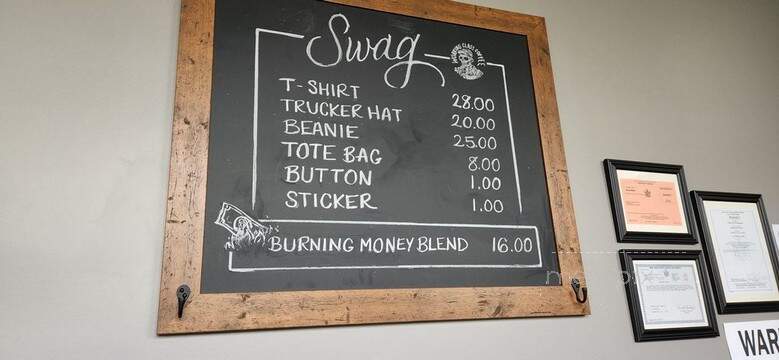 Swag
T-SHIRT 28.00
TRUCKER HAT 20.00
BEANIE 25.00
TOTE BAG 8.00
BUTTON 1.00
STICKER 1.00
BURNING MONEY BLEND 16.00
WAR